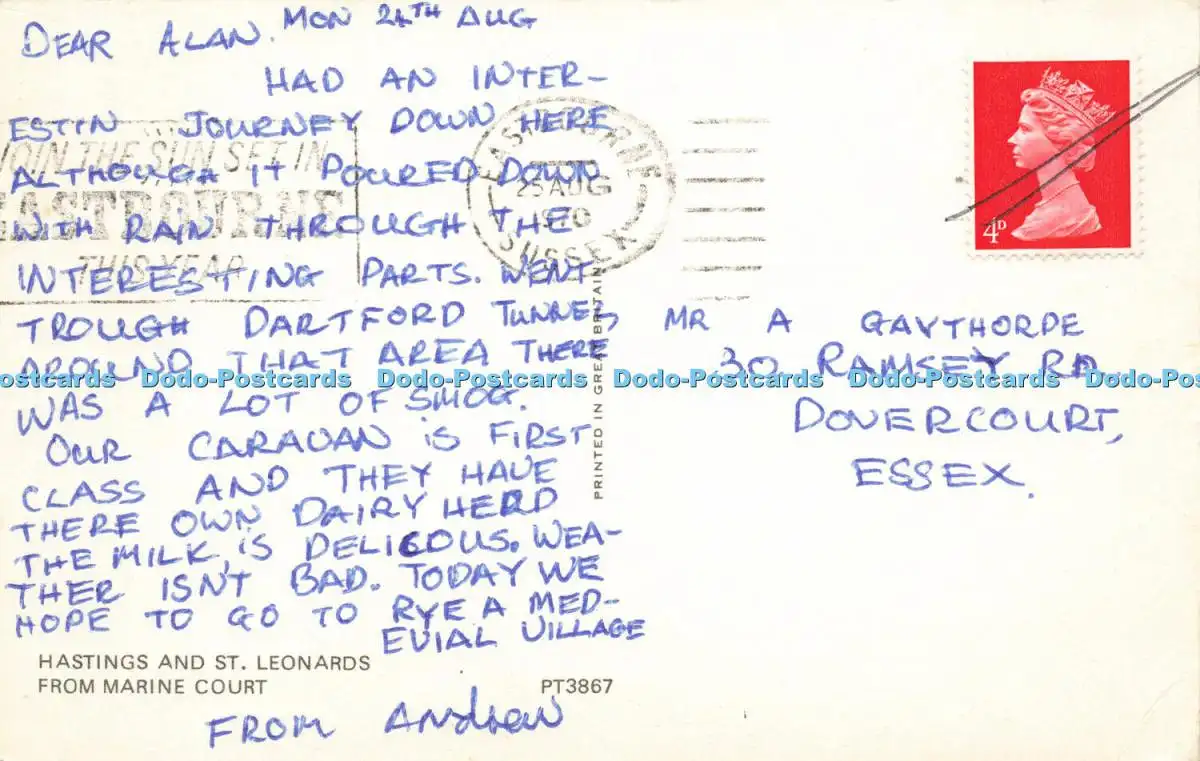 DEAR ALAN. MON 24TH AUG
HAD AN INTER-
ESTIN JOURNEY DOWN HERE
ALTHOUGH IT POURED DOWN
WITH RAIN THROUGH THE
INTERESTING PARTS. WENT
TROUGH DARTFORD TUNNEL,
AROUND THAT AREA THERE
WAS A LOT OF SMOG.
OUR CARAVAN IS FIRST
CLASS AND THEY HAVE
THERE OWN DAIRY HERD
THE MILK, IS DELICOUS. WEA-
THER ISN'T BAD. TODAY WE
HOPE TO GO TO RYE A MED-
EVIAL VILLAGE
HASTINGS AND ST. LEONARDS
FROM MARINE COURT
PT3867
FROM Andrew
JOIN THE SUN SET IN
EASTBOURNE
THIS YEAR
EASTBOURNE
25 AUG
1970
SUSSEX
PRINTED IN GREAT BRITAIN
4D
MR A GAYTHORPE
30 RAMSEY RD
DOVERCOURT,
ESSEX.
Dodo-Postcards Dodo-Postcards Dodo-Postcards Dodo-Postcards Dodo-Postcards